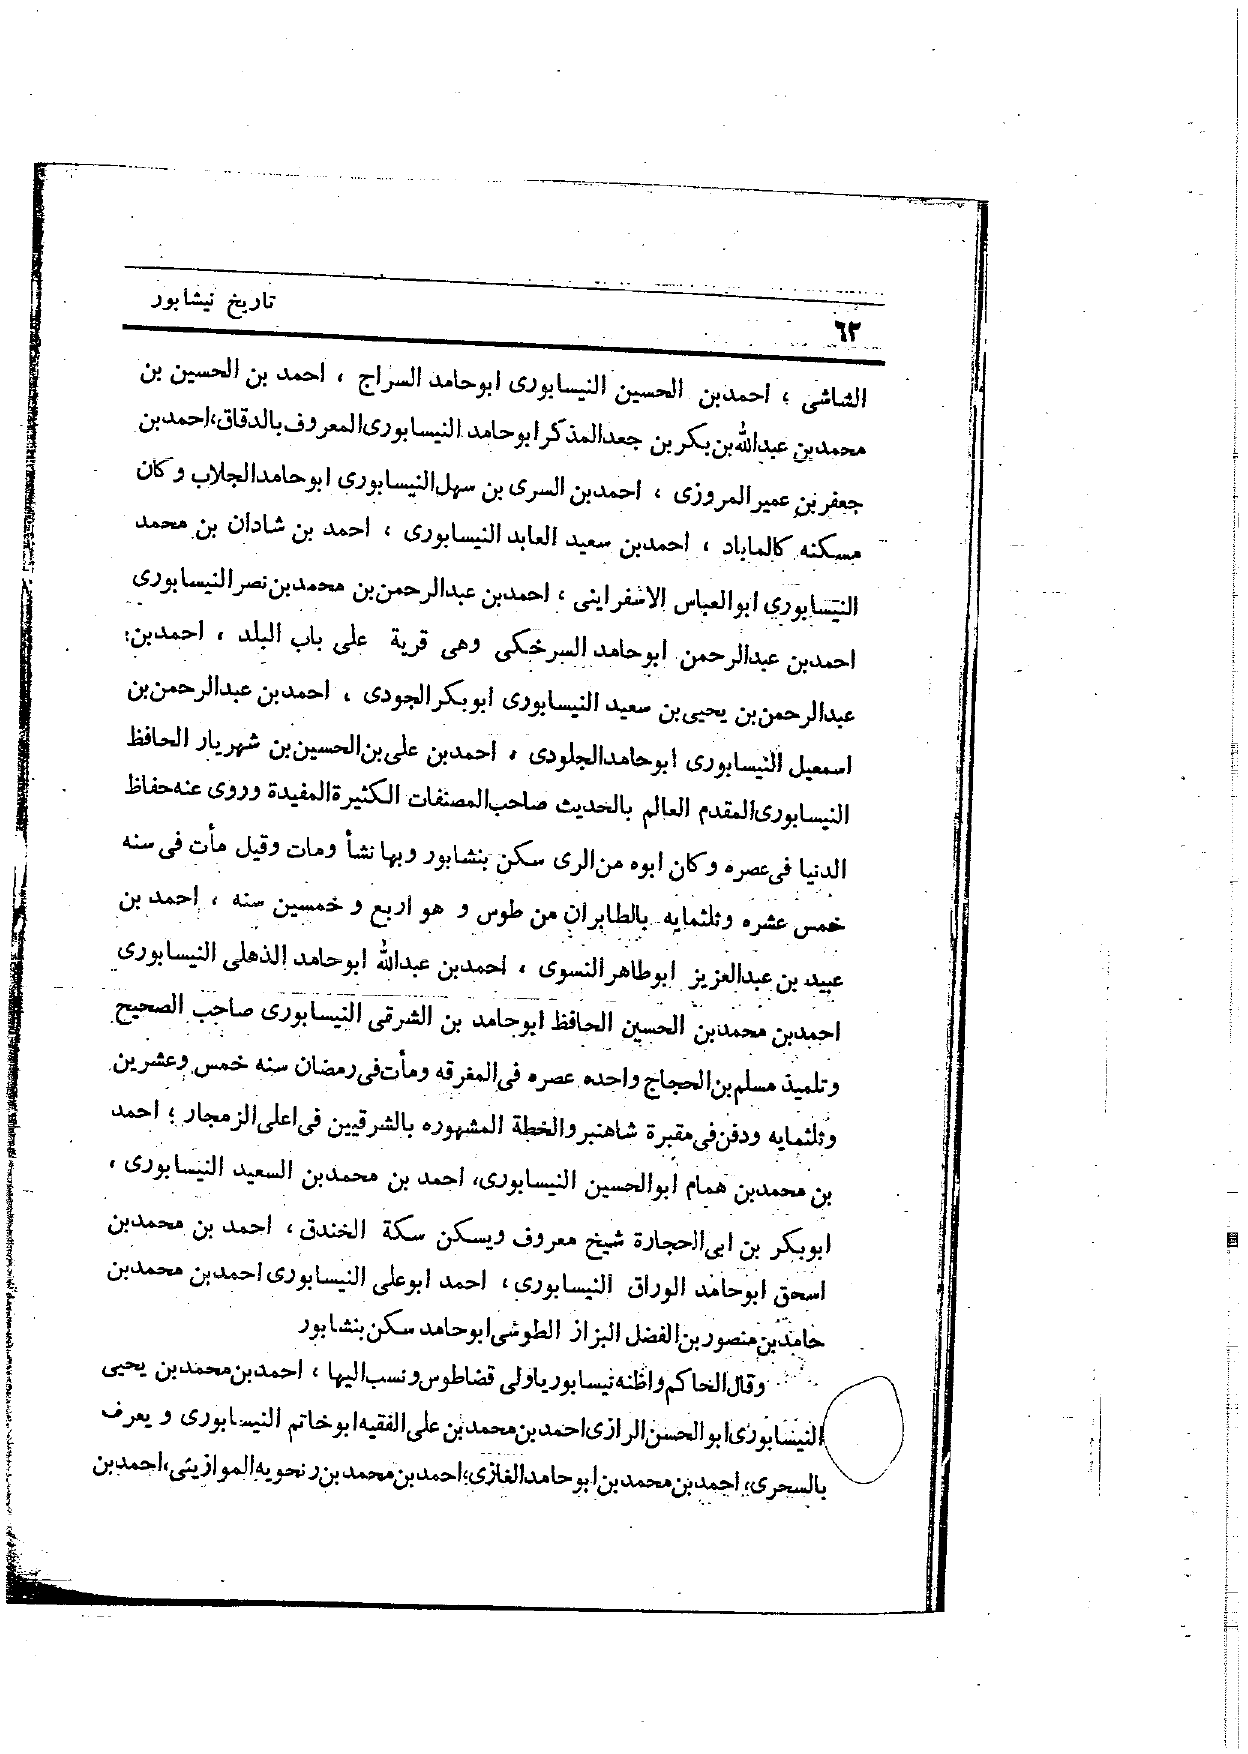 تاریخ نیشابور
٦٢
الشاشی ؛ احمدبن الحسین النیسابوری ابوحامد السراج ، احمد بن الحسین بن
محمدبن عبدالله‌بن‌بکر بن جعدالمذکر ابوحامد النیسابوری‌المعروف بالدقاق،احمدبن
جعفر بن عمیر المروزی ، احمدبن السری بن سهل‌النیسابوری ابوحامدالجلاب و کان
مسکنه کالماباد ، احمدبن سعید العابد النیسابوری ، احمد بن شادان بن محمد
النیسابوری ابوالعباس الاسفراینی ، احمدبن عبدالرحمن‌بن محمدبن‌نصر النیسابوری
احمدبن عبدالرحمن ابوحامد السرخکی وهی قریة علی باب البلد ، احمدبن
عبدالرحمن‌بن یحیی‌بن سعید النیسابوری ابوبکر الجودی ، احمدبن عبدالرحمن‌بن
اسمعیل النیسابوری ابوحامدالجلودی ، احمدبن علی‌بن‌الحسین‌بن شهریار الحافظ
النیسابوری‌المقدم العالم بالحدیث صاحب‌المصنفات الکثیرة‌المفیدة وروی عنه‌حفاظ
الدنیا فی‌عصره وکان ابوه من‌الری سکن بنشابور وبها نشأ ومات وقیل مأت فی سنه
خمس عشره وثلثمایه بالطابران من طوس و هو اربع و خمسین سنه ، احمد بن
عبید بن عبدالعزیز ابوطاهر النسوی ، احمدبن عبدالله ابوحامد الذهلی النیسابوری
احمدبن محمدبن الحسین الحافظ ابوحامد بن الشرقی النیسابوری صاحب الصحیح
وتلمیذ مسلم‌بن‌الحجاج واحده عصره فی‌المفرقه ومأت‌فی‌رمضان سنه خمس وعشرین
وثلثمایه ودفن‌فی‌مقبرة شاهنبر والخطة المشهوره بالشرقیین فی‌اعلی‌الزمجار ؛ احمد
بن محمدبن همام ابوالحسین النیسابوری، احمد بن محمدبن السعید النیسابوری ،
ابوبکر بن ابی‌الحجارة شیخ معروف ویسکن سکة الخندق ، احمد بن محمدبن
اسحق ابوحامد الوراق النیسابوری ، احمد ابوعلی النیسابوری احمدبن محمدبن
حامدبن‌منصوربن‌الفضل البزاز الطوشی‌ابوحامد سکن‌بنشابور
وقال‌الحاکم‌واظنه‌نیسابوریاولی قضاطوس‌ونسب‌الیها ، احمدبن‌محمدبن یحیی
النیسابوری‌ابوالحسن‌الرازی‌احمدبن‌محمدبن علی‌الفقیه‌ابوخاتم النیسابوری و یعرف
بالسحری، احمدبن‌محمدبن‌ابوحامدالغازی؛احمدبن‌محمدبن‌رنحویه‌الموازینی،احمدبن